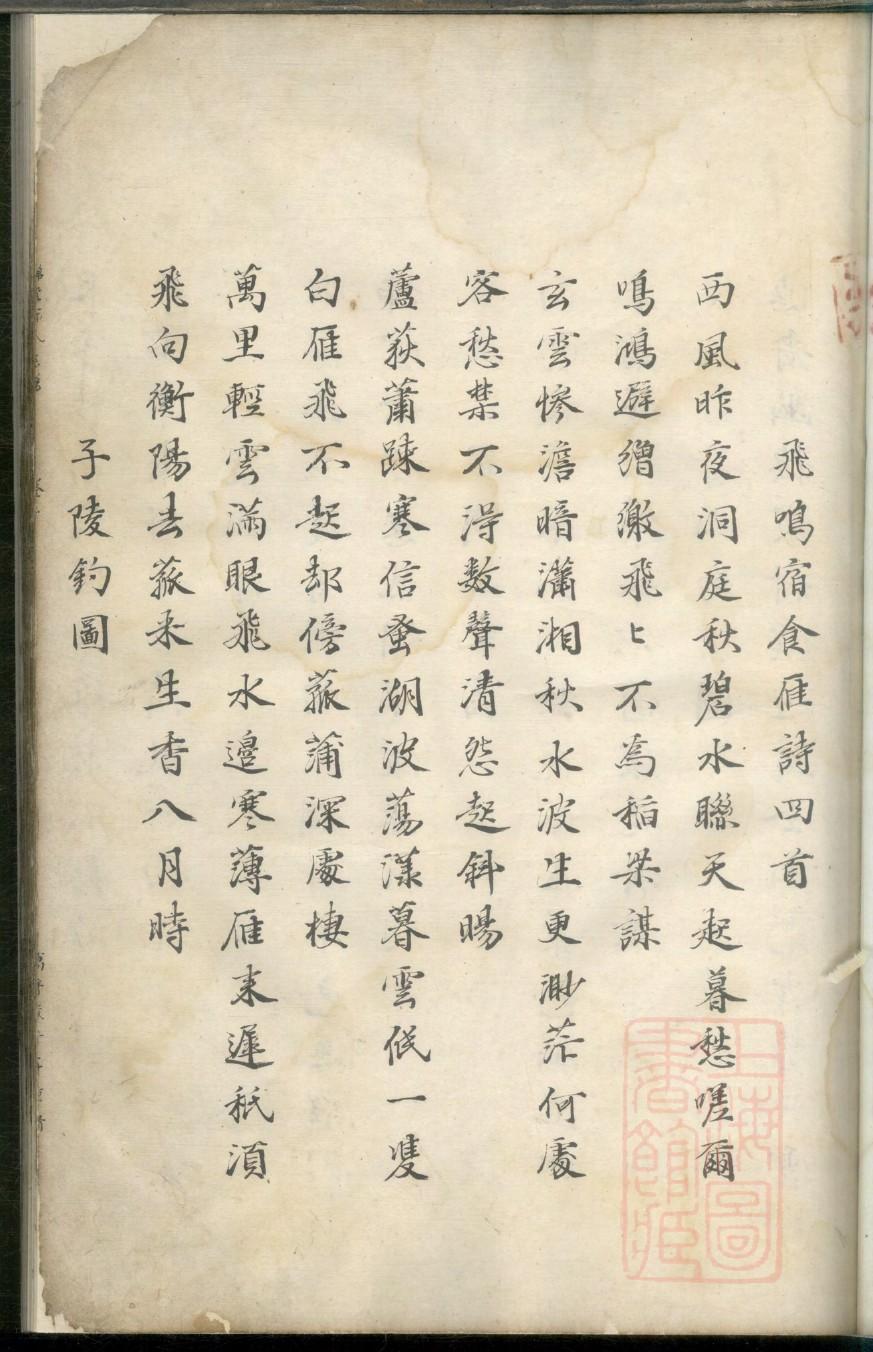 飛鳴宿食雁詩四首
西風昨夜洞庭秋碧水聯天起暮愁嗟爾
鳴鴻避矰繳飛〻不為稻粱謀
玄雲慘澹暗瀟湘秋水波生更渺茫何處
客愁禁不得數聲清怨起斜暘
蘆荻蕭踈寒信蚤湖波蕩漾暮雲低一隻
白雁飛不起却傍菰蒲深處棲
萬里輕雲滿眼飛水邊寒薄雁来遲秪湏
飛向衡陽去菰米生香八月時
子陵釣圖
上海圖書館藏